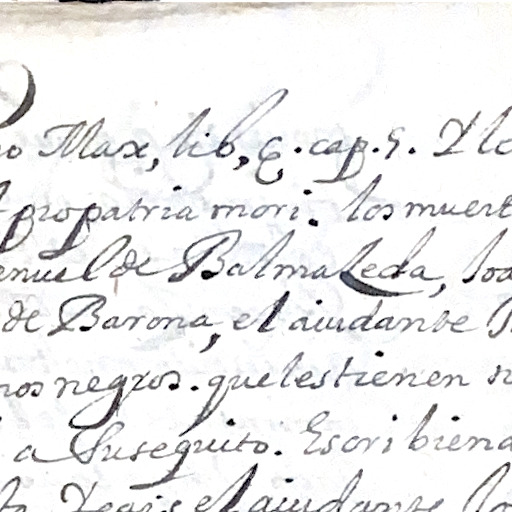 Max, lib, 6. cap. 5. Y lo
propatria mori. los muert
enuel de Balmaseda, Joa
de Barona, el aiudante
nos negros. que les tienen su
a Susequito. Escribiend
el aiudante Jo